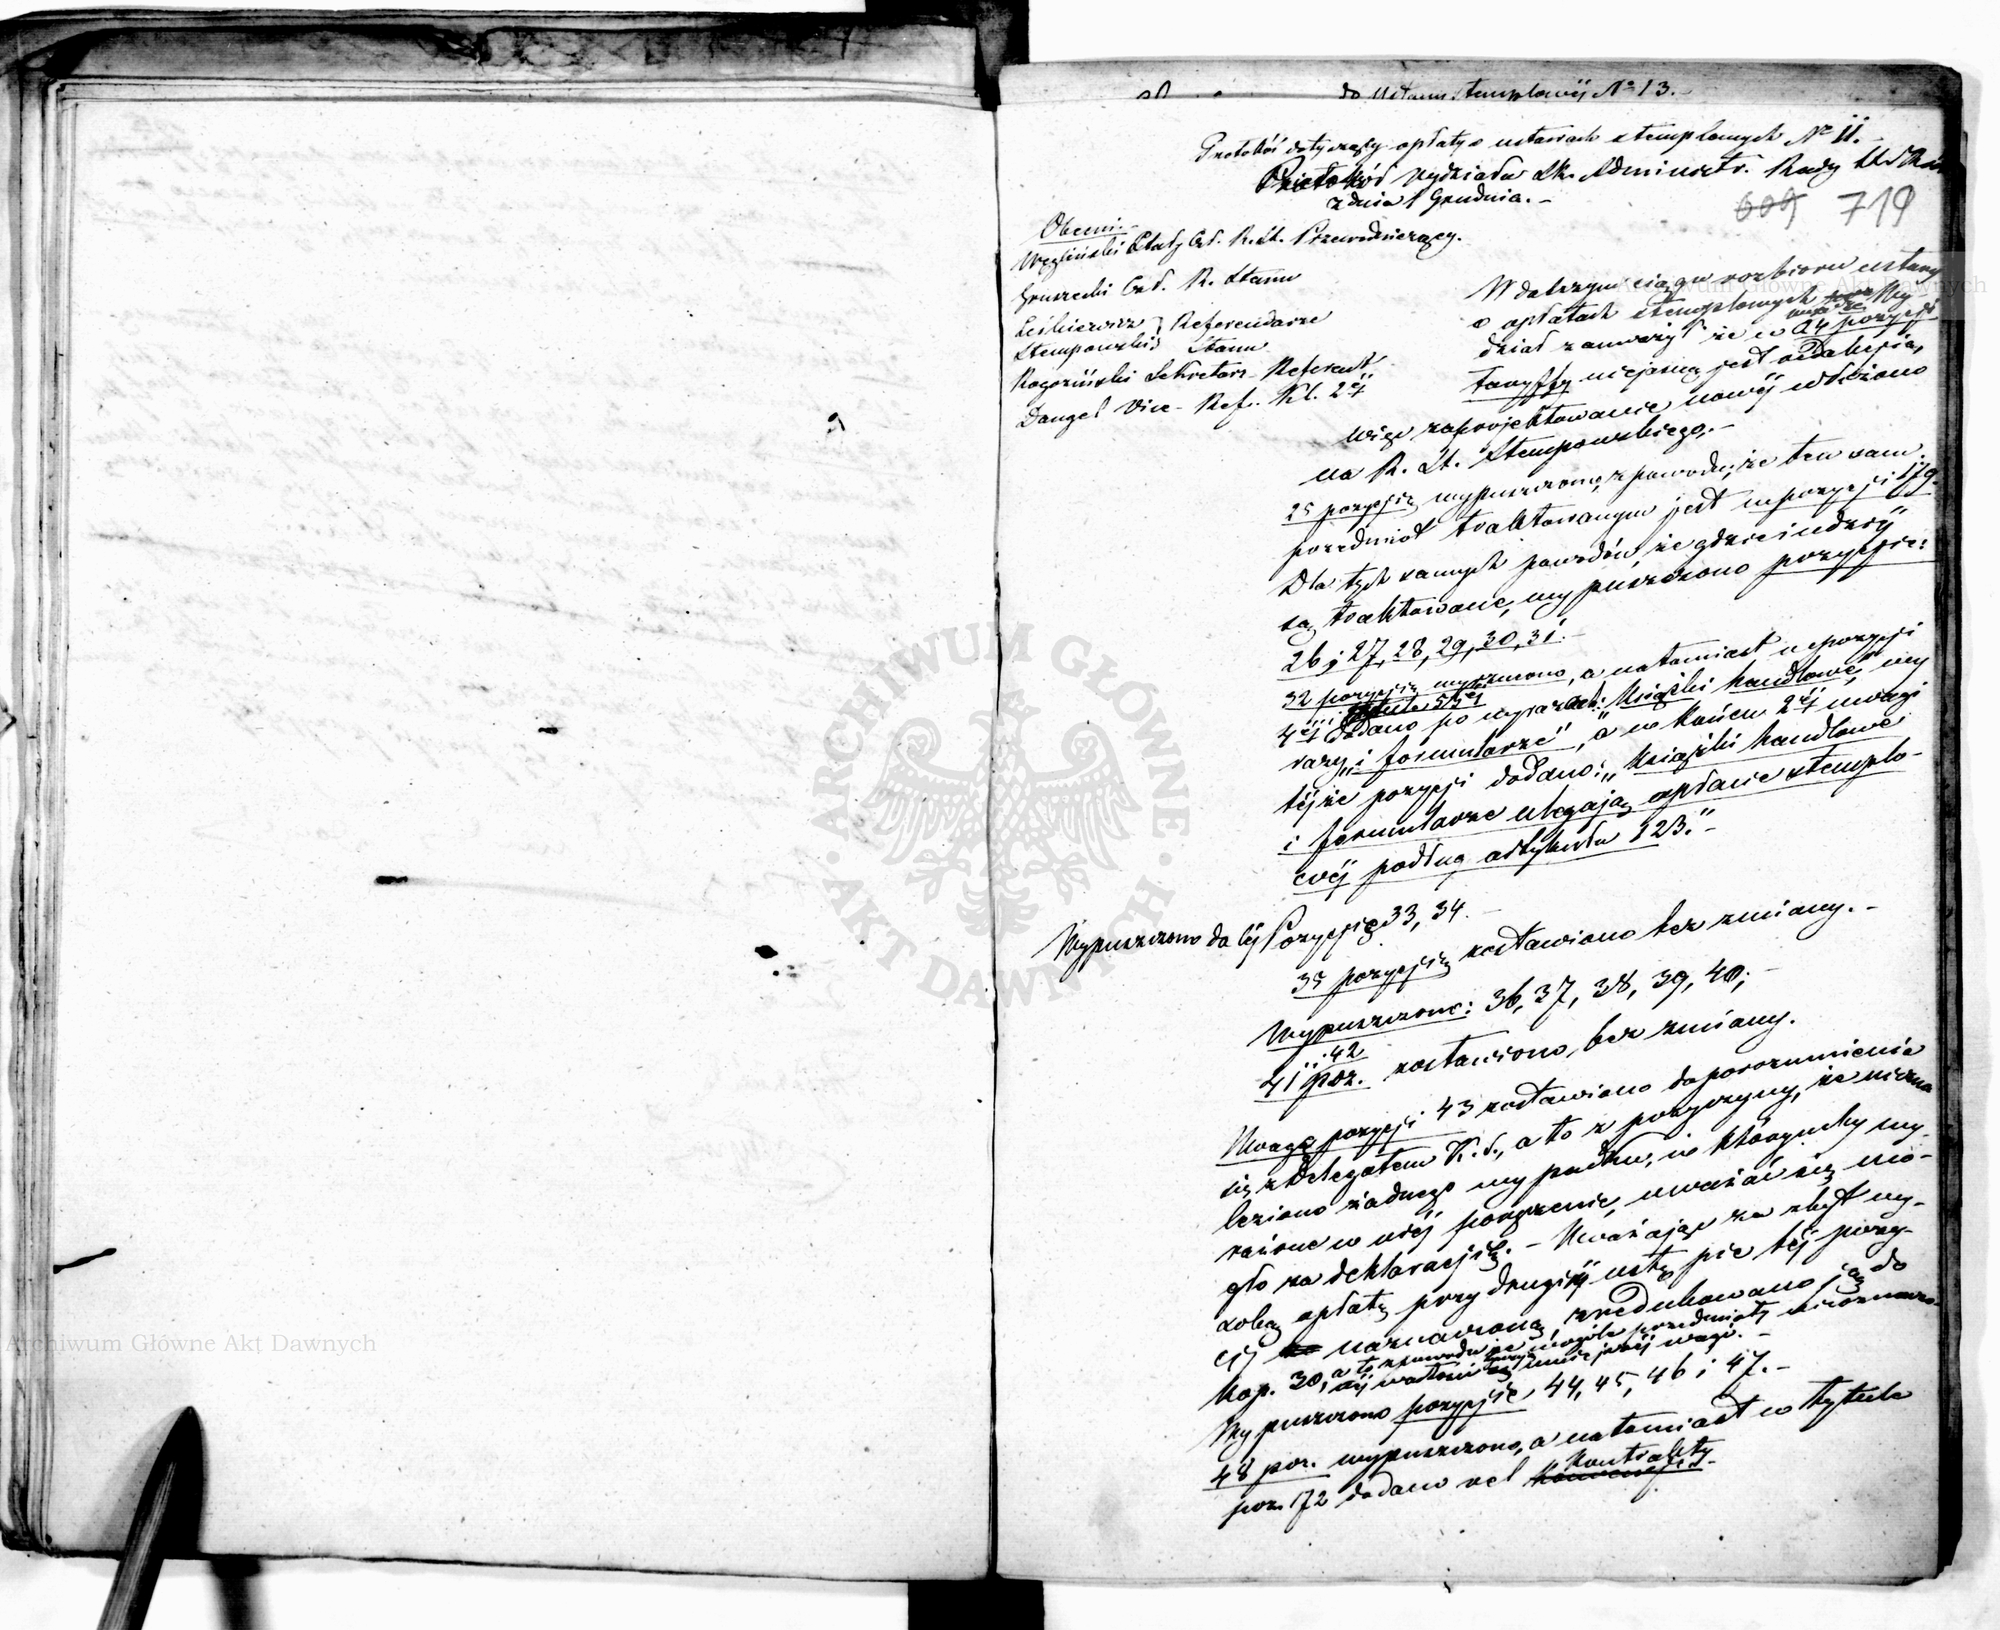 do Ustawy stemplowéj No 13.
Protokół dotyczący opłaty o ustawach stemplowych Nr 11.
Protokół Wydziału Sk. Administr. Rady
z dnia 1 Grudnia. –
609 719
Obecni. –
Węgliński Stały Czł. R. St. Przewodniczący.
Gruszecki Czł. R. Stanu
Leśkiewicz } Referendarze
Stempowski } Stanu
Rogoziński Sekretarz Referent.
Dangel Vice-Ref. Kl. 2éj
W dalszym ciągu rozbioru ustawy
o opłatach stemplowych Wy-
dział zauważył że w 24 pozycji
taryffy niejasną jest redakcja,
więc zaprojektowanie nowéj włożono
na R. St. Stempowskiego. –
25 pozycją wypuszczono, z powodu, że ten sam
przedmiot traktowanym jest w pozycji 179.
Dla tych samych powodów, że gdzieindziéj
są traktowane, wypuszczono pozycje:
26 i 27, 28, 29, 30, 31. –
32 pozycją wypuszczono, a natomiast w pozycji
4éj dodano po wyrazach: Książki handlowe wy
razy „i formularze", a w końcu 2éj uwagi
téjże pozycji dodano: „Książki handlowe
i formularze ulegają opłacie stemplo-
wéj podług artykułu 123." –
Wypuszczono daléj Pozycje 33, 34. –
35 pozycją zostawiono bez zmiany. –
Wypuszczono: 36, 37, 38, 39, 40; –
41 i 42 poz. zostawiono, bez zmiany.
Uwagę pozycji 43 zostawiono do porozumienia
się z Delegatem K. S., a to z przyczyny, że niezna
leziono żadnego wypadku, w którymby wy-
rażone w niéj poręczenie, uważać się mo-
gło za deklaracją. – Uważając za zbyt wy-
soką opłatę przy drugim ustępie téj pozy-
cji naznaczoną, zredukowano ją do
kop. 30, a to z powodu że w ogóle przedmioty nieoznaczo-
néj wartości są mniejszéj wagi. –
Wypuszczono pozycje 44, 45, 46 i 47. –
48 poz. wypuszczono, a natomiast w tytule
poz. 172 dodano vel kontrakty –
ARCHIWUM GŁÓWNE AKT DAWNYCH
Archiwum Główne Akt Dawnych
Archiwum Główne Akt Dawnych